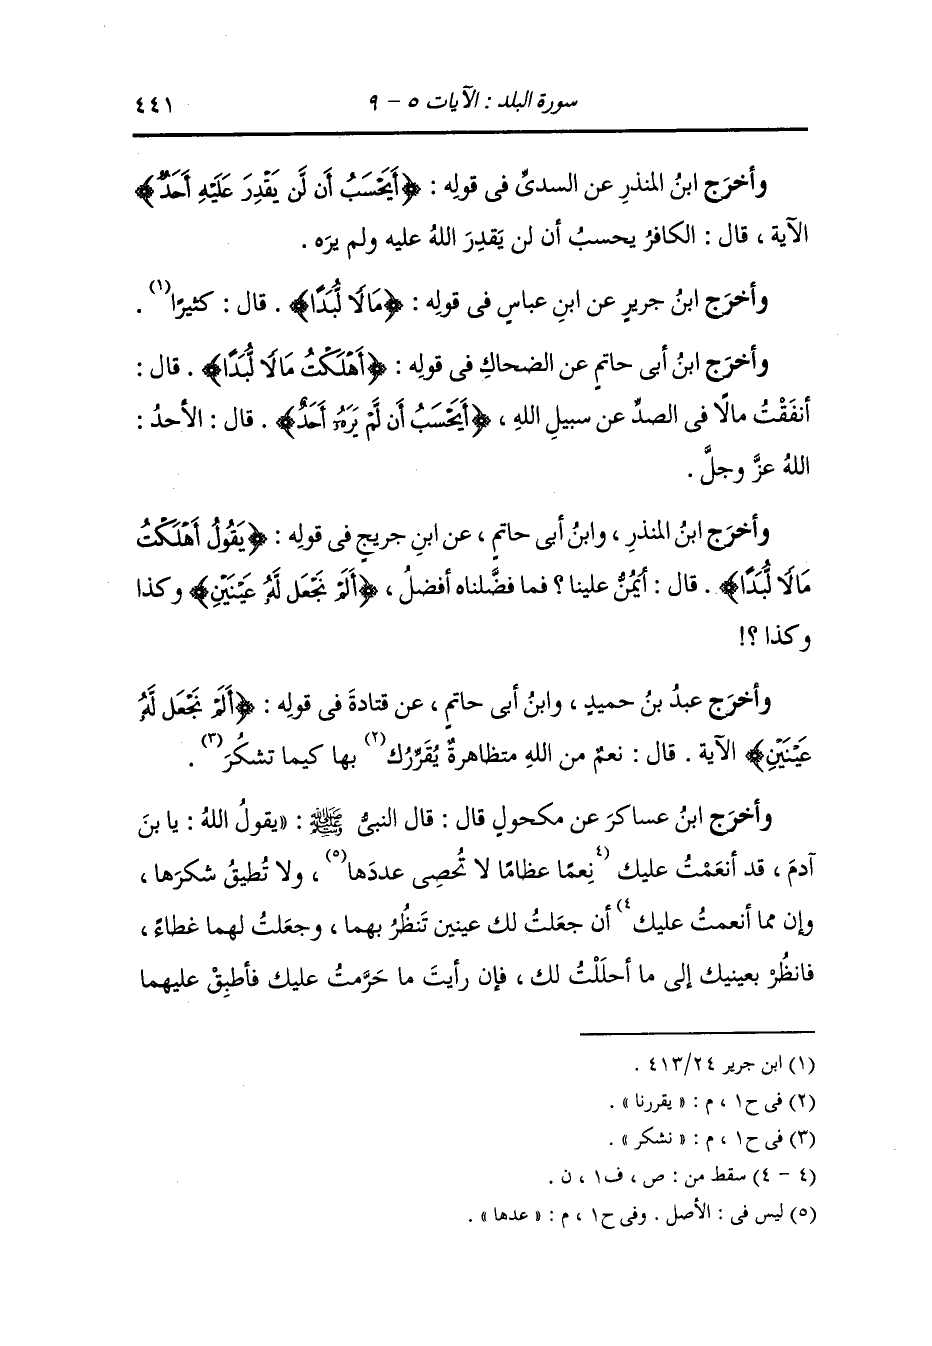 سورة البلد : الآيات ٥ - ٩ ٤٤١
وأخرَج ابنُ المنذرِ عن السدىِّ فى قولِه : ﴿أَيَحْسَبُ أَن لَّن يَقْدِرَ عَلَيْهِ أَحَدٌ﴾
الآية ، قال : الكافرُ يحسبُ أن لن يَقدِرَ اللهُ عليه ولم يرَه .
وأخرَج ابنُ جريرٍ عن ابنِ عباسٍ فى قولِه : ﴿مَالًا لُّبَدًا﴾ . قال : كثيرًا(١) .
وأخرَج ابنُ أبى حاتمٍ عن الضحاكِ فى قولِه : ﴿أَهْلَكْتُ مَالًا لُّبَدًا﴾ . قال :
أنفَقْتُ مالًا فى الصدِّ عن سبيلِ اللهِ ، ﴿أَيَحْسَبُ أَن لَّمْ يَرَهُۥ أَحَدٌ﴾ . قال : الأحدُ :
اللهُ عزَّ وجلَّ .
وأخرَج ابنُ المنذرِ ، وابنُ أبى حاتمٍ ، عن ابنِ جريجٍ فى قولِه : ﴿يَقُولُ أَهْلَكْتُ
مَالًا لُّبَدًا﴾ . قال : أيَمُنُّ علينا ؟ فما فضَّلناه أفضلُ ، ﴿أَلَمْ نَجْعَل لَّهُۥ عَيْنَيْنِ﴾ وكذا
وكذا ؟!
وأخرَج عبدُ بنُ حميدٍ ، وابنُ أبى حاتمٍ ، عن قتادةَ فى قولِه : ﴿أَلَمْ نَجْعَل لَّهُۥ
عَيْنَيْنِ﴾ الآية . قال : نعمٌ من اللهِ متظاهرةٌ يُقَرِّرُك(٢) بها كيما تشكُرَ(٣) .
وأخرَج ابنُ عساكرَ عن مكحولٍ قال : قال النبىُّ ﷺ : «يقولُ اللهُ : يا بنَ
آدمَ ، قد أنعَمْتُ عليك (٤نِعمًا عظامًا لا تُحصِى عددَها(٥) ، ولا تُطيقُ شكرَها ،
وإن مما أنعمتُ عليك٤) أن جعَلتُ لك عينين تَنظُرُ بهما ، وجعَلتُ لهما غطاءً ،
فانظُرْ بعينيك إلى ما أحلَلْتُ لك ، فإن رأيتَ ما حَرَّمتُ عليك فأطبِقْ عليهما
(١) ابن جرير ٤١٣/٢٤ .
(٢) فى ح١ ، م : « يقررنا » .
(٣) فى ح١ ، م : « نشكر » .
(٤ - ٤) سقط من : ص ، ف١ ، ن .
(٥) ليس فى : الأصل . وفى ح١ ، م : « عدها » .